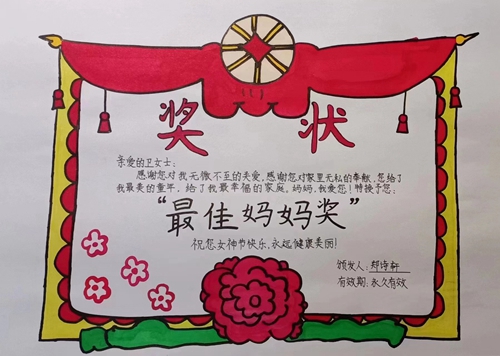 奖 状
亲爱的卫女士:
感谢您对我无微不至的关爱,感谢您对家里无私的奉献,您给了
我最美的童年,给了我最幸福的家庭。妈妈,我爱您!特授予您:
“最佳妈妈奖”
祝您女神节快乐、永远健康美丽!
颁发人:郑诗轩
有效期:永久有效